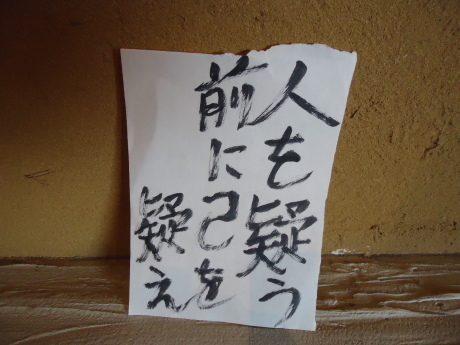 人を疑う
前に己を
疑え